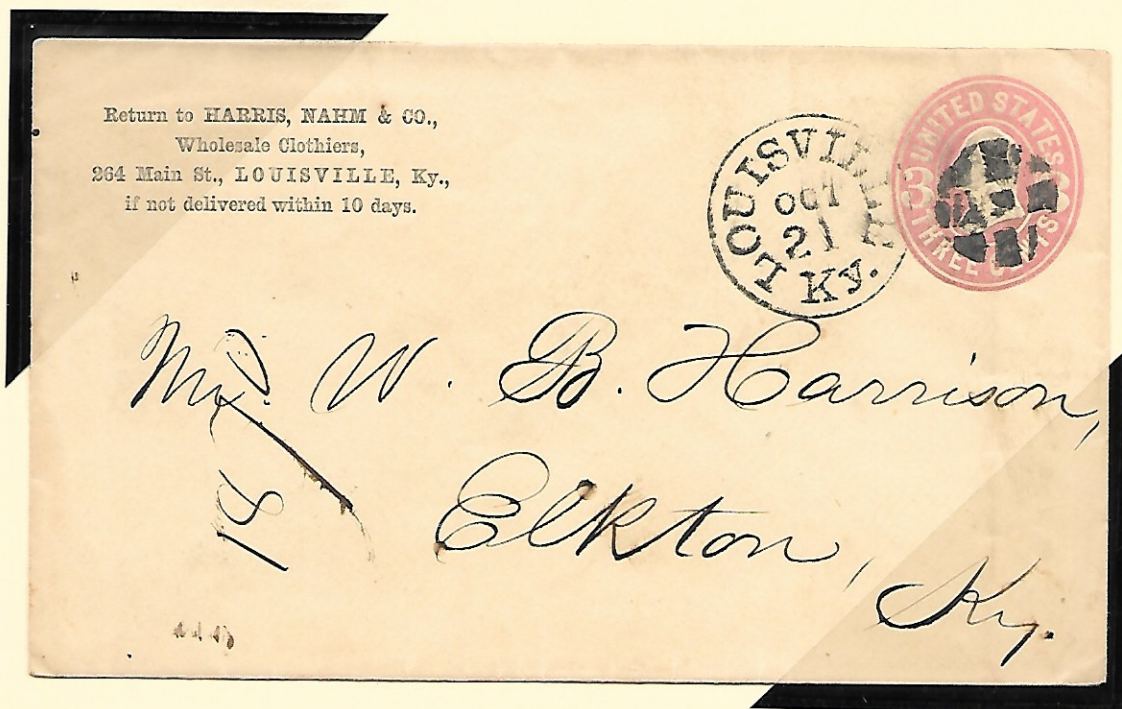 Return to HARRIS, NAHM & CO.,
Wholesale Clothiers,
264 Main St., LOUISVILLE, Ky.,
if not delivered within 10 days.
LOUISVILLE
OCT
21
Ky.
UNITED STATES
3
THREE CENTS
W. B. Harrison,
Elkton,
Ky.